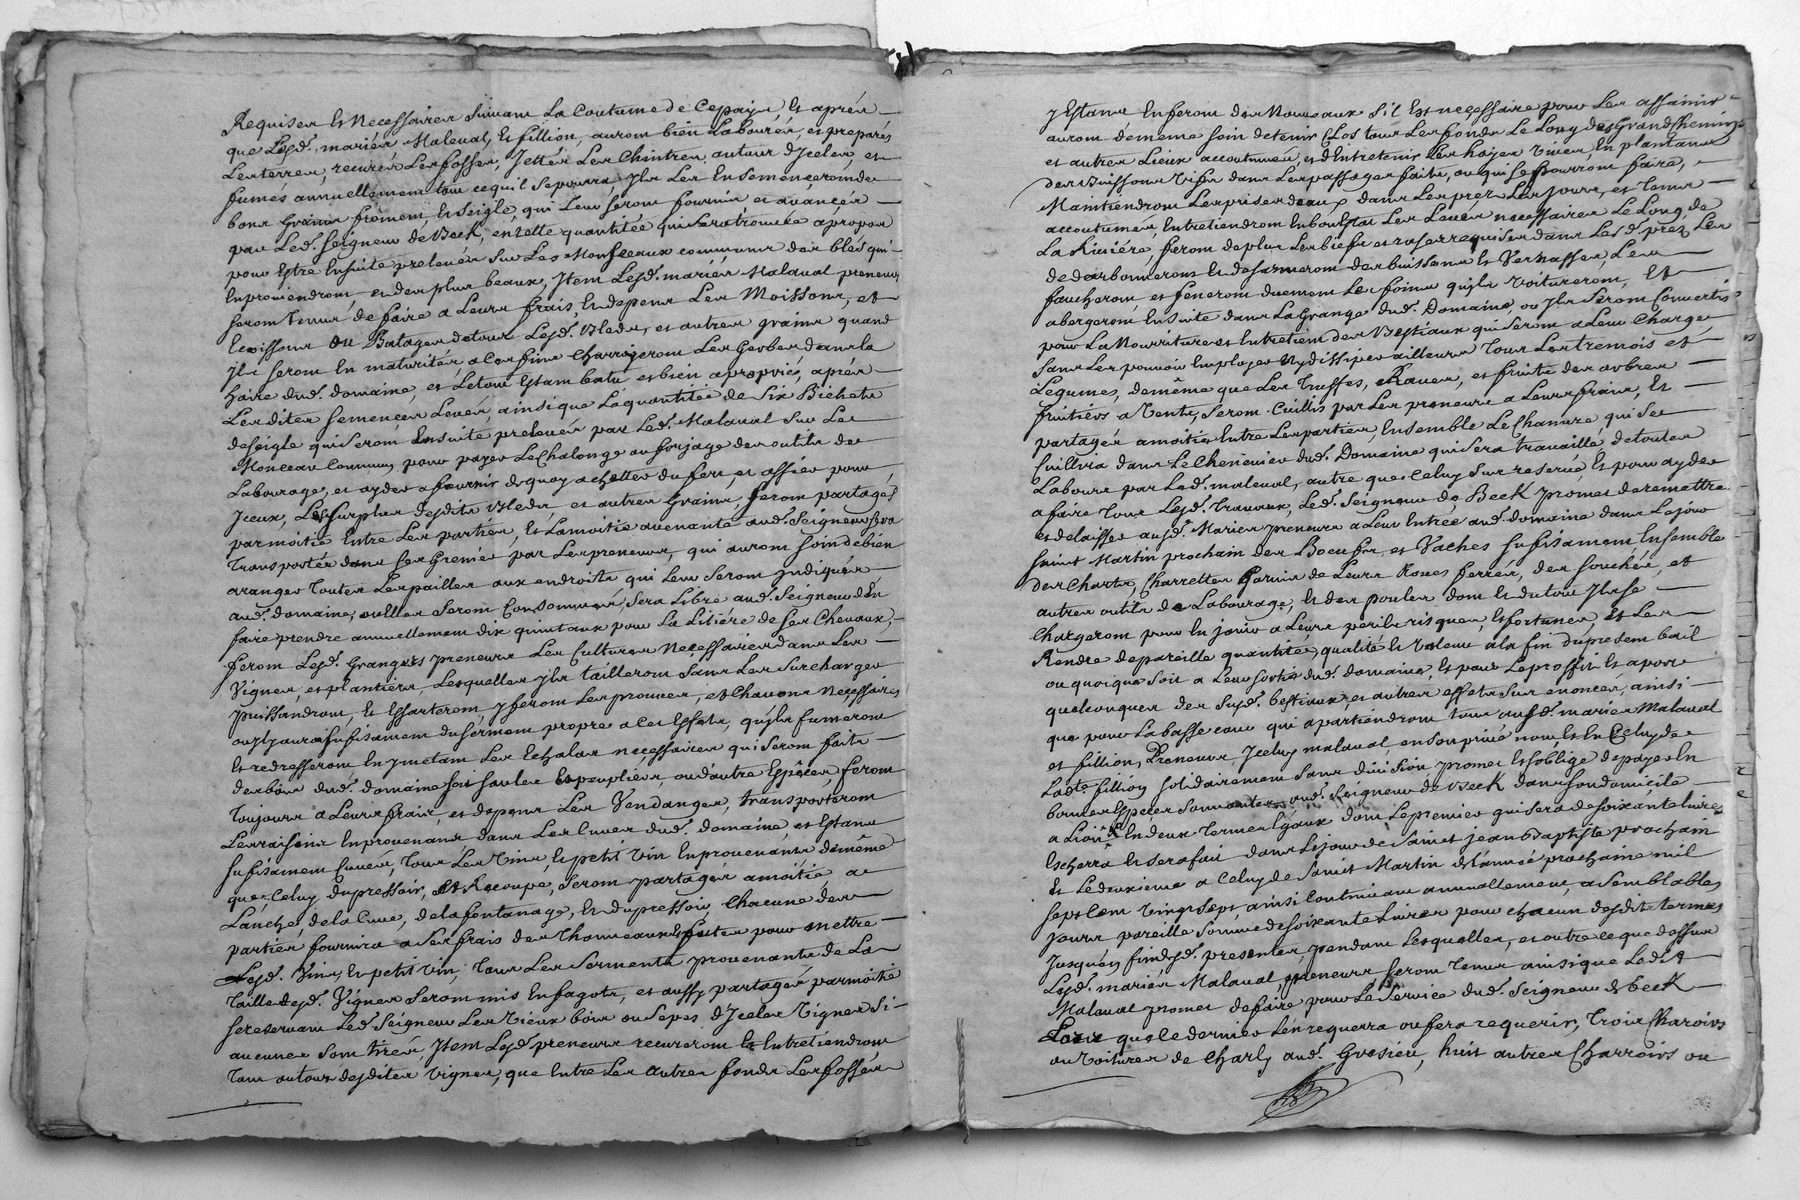 Requises et Necessaires suivant la Coutume de Ce pays, et aprés
que Lesd. mariés Malaval, et fillion, auront bien Labourés, et preparés
Les terres, recurés Les fosses, Jettés Les Chintres autour d'Jcelles et
fumés annuellement tout ce qu'il se pourra, Jls Les Ensemenceront de
bons Grains froment, et seigle, qui Leur seront fournis et avancés
par Led. Seigneur de Beek, en telle quantitée qui sera trouvée apropos
pour Estre Ensuitte prelevés sur Les Monceaux communs des bleds qui
En proviendront, et des plus beaux, Jtem Lesd. mariés Malaval preneurs
seront tenus de faire a Leurs frais, et depens Les Moissons, et
Ecossons ou Batages de tous Lesd. bleds, et autres grains quand
Jls seront En maturités, a Ces fins Charrieront Les Gerbes dans la
haire dud. domaine, et Le tout Estant batu, et bien aproprié, aprés
Les dites semences Levées, ainsi que La quantitée de six Bichets
de seigle qui seront Ensuitte prelevés par Led. Malaval sur Les
Monceaux Communs pour payer Le Chalonge au forjage des outils de
Labourage, et ayder a fournir dequoy achetter du fert, et assier pour
Jceux, Le surplus desdits bleds, et autres Grains, seront partagés
par moitié Entre Les parties, et La moitié avenante aud. Seigneur sera
transportée dans ses Greniers par Les preneurs, qui auront soin de bien
aranger toutes Les pailles aux endroits qui Leur seront Jndiqués
aud. domaine, ou Elles seront Consommées, sera Libre aud. Seigneur d'En
faire prendre annuellement dix quintaux pour La Litiére de ses Chevaux,
feront Lesd. Grangers preneurs Les Cultures Necessaires dans Les
Vignes, et plantiers, Lesquelles Jls tailleront sans Les surcharger
puissandront, et Essarteront, y feront Les prouves, et Chavons necessaires
ou Jl y aura sufisamment du serment propre a Cet Effet, qu'Jls fumeront
et redresseront En y mettant Les Echalas necessaires qui seront faits
des bois dud. domaine soit saules et peupliers, ou d'autre Espêce, feront
toujours a Leurs frais, et depens Les Vendanges, transporteront
Les raisins En provenants dans Les Cuves dud. domaine, et Estant
sufisament Cuvés, tous Les Vins, et petit vin En provenants de même
que Celuy du pressoir, et Recoupe, seront partagés a moitié a
L'anche, de la Cuve, de la fontanage, et du pressoir Chacune des
parties fournira a ses frais des Thonneaux et futes pour mettre
Lesd. Vins, et petit vin, tous Les Serments provenants de La
taille desd. Vignes seront mis En fagots, et aussy partagés par moitié
se reservant Led. Seigneur Les Vieux bois ou sepes d'Jcelles Vignes si
aucunes sont tirées, Jtem Lesd. preneurs recureront et Entretiendront
tant autour desdites Vignes, que Entre Les autres fonds Les fossés
y Estant En feront des Nouveaux s'il Est necessaire pour Les assainir
auront de même soin de tenir Clos tous Les fonds Le Long des Grands Chemins
et autres Lieux accoutumés, et d'Entretenir Les hayes vives En plantant
des Buissons vifs dans Les passages faits, ou qui se pourront faire,
Maintiendront Les prises d'eaux dans Les prez Les jours, et tems
accoutumés, Entretiendront En bon Estat Les Levées necessaires Le Long de
La Riviére, feront de plus Les biefs et rases requises dans Lesd. prez, Les
dedarbonneront et desarmeront des buissons et Vernasses, Les
faucheront et feneront duement Les foins qu'Jls voitureront, Et
abergeront Ensuite dans La Grange dud. Domaine, ou Jls seront Convertis
pour La Nourriture et Entretient des Bestiaux qui seront a Leur Charge,
sans Les pouvoir Employer Ny dissiper ailleurs tous Les tremois et
Légumes, de même que Les truffes, Raves, et fruits des arbres
fruitiers a Vente, seront Cuillis par Les preneurs a Leurs frais, et
partagés a moitié Entre Les parties, Ensemble Le Chanvre qui se
Cuillira dans Le Chenevier dud. Domaine qui sera travaillé de toutes
Laboures par Led. malaval, autre que Celuy sus reservé, et pour ayder
a faire tous Lesd. travaux, Led. Seigneur de Beek promet de remettre
et delaisser auxd. Mariés preneurs a Leur Entrée aud. domaine dans Le jour
saint Martin prochain des Boeufs, et Vaches sufisament Ensemble
des Charts, Charrettes Garnis de Leurs Roues ferrées, des souchée, et
autres outils de Labourage, et des poules dont et du tout Jls se
Chargeront pour En jouir a Leurs perils risques, et fortunes, et Les
Rendre de pareille quantitée, qualité et valeur a la fin du present bail
ou quoique soit a Leur sortie dud. domaine, et pour Les proffits et apors
quelconques des susd. bestiaux, et autres effets sus enoncés, ainsi
que pour La basse cour qui apartiendront tous auxd. mariés Malaval
et fillion, Preneurs, Jceluy malaval, en son privé nom, et En Celuy de
Lad.te fillion solidairement sans division promet et s'oblige de payer En
bonnes Especes sonnantes aud. Seigneur de Beek dans son domicile
a Lion En deux termes Egaux dont Le premier qui sera de soixante livres
Escherra et se fera dans Le jour de Saint jean Baptiste prochain
et Le deuxieme a Celuy de Saint Martin de L'année prochaine mil
sept Cent Vingt sept, ainsi Continuant annuellement, a semblables
jours pareille somme de soixante Livres pour chacun desdits termes
Jusqu'en fin desd. presentes, pendant Lesquelles, et outre ce que dessus
Lesd. mariés Malaval, preneurs seront tenus ainsi que Led.
Malaval promet de faire pour Le service dud. Seigneur de beek
Lors que ce dernier L'en requerra ou fera requerir, trois Charois
ou voitures de Charly aud. Gresieu, huit autres Charrois ou